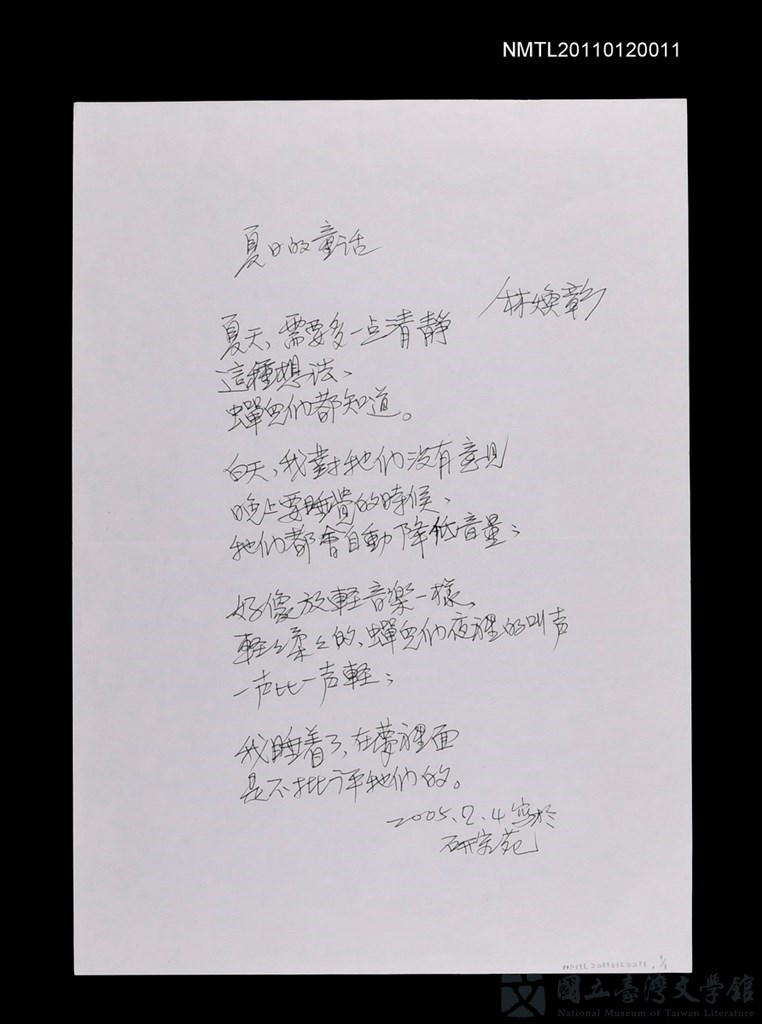 NMTL20110120011
夏日的童话
林煥彰
夏天、需要多一点清静
這種想法、
蟬兒们都知道。
白天、我對牠们没有意見
晚上要睡覺的時候、
牠们都會自動降低音量；
好像放軽音楽一樣、
軽々柔々的、蟬兒们夜裡的叫声
一声比一声軽；
我睡着了、在夢裡面
是不批评牠们的。
2005.7.4寫於
研究苑
NMTL20110120011, 1/1
國立臺灣文學館
National Museum of Taiwan Literature